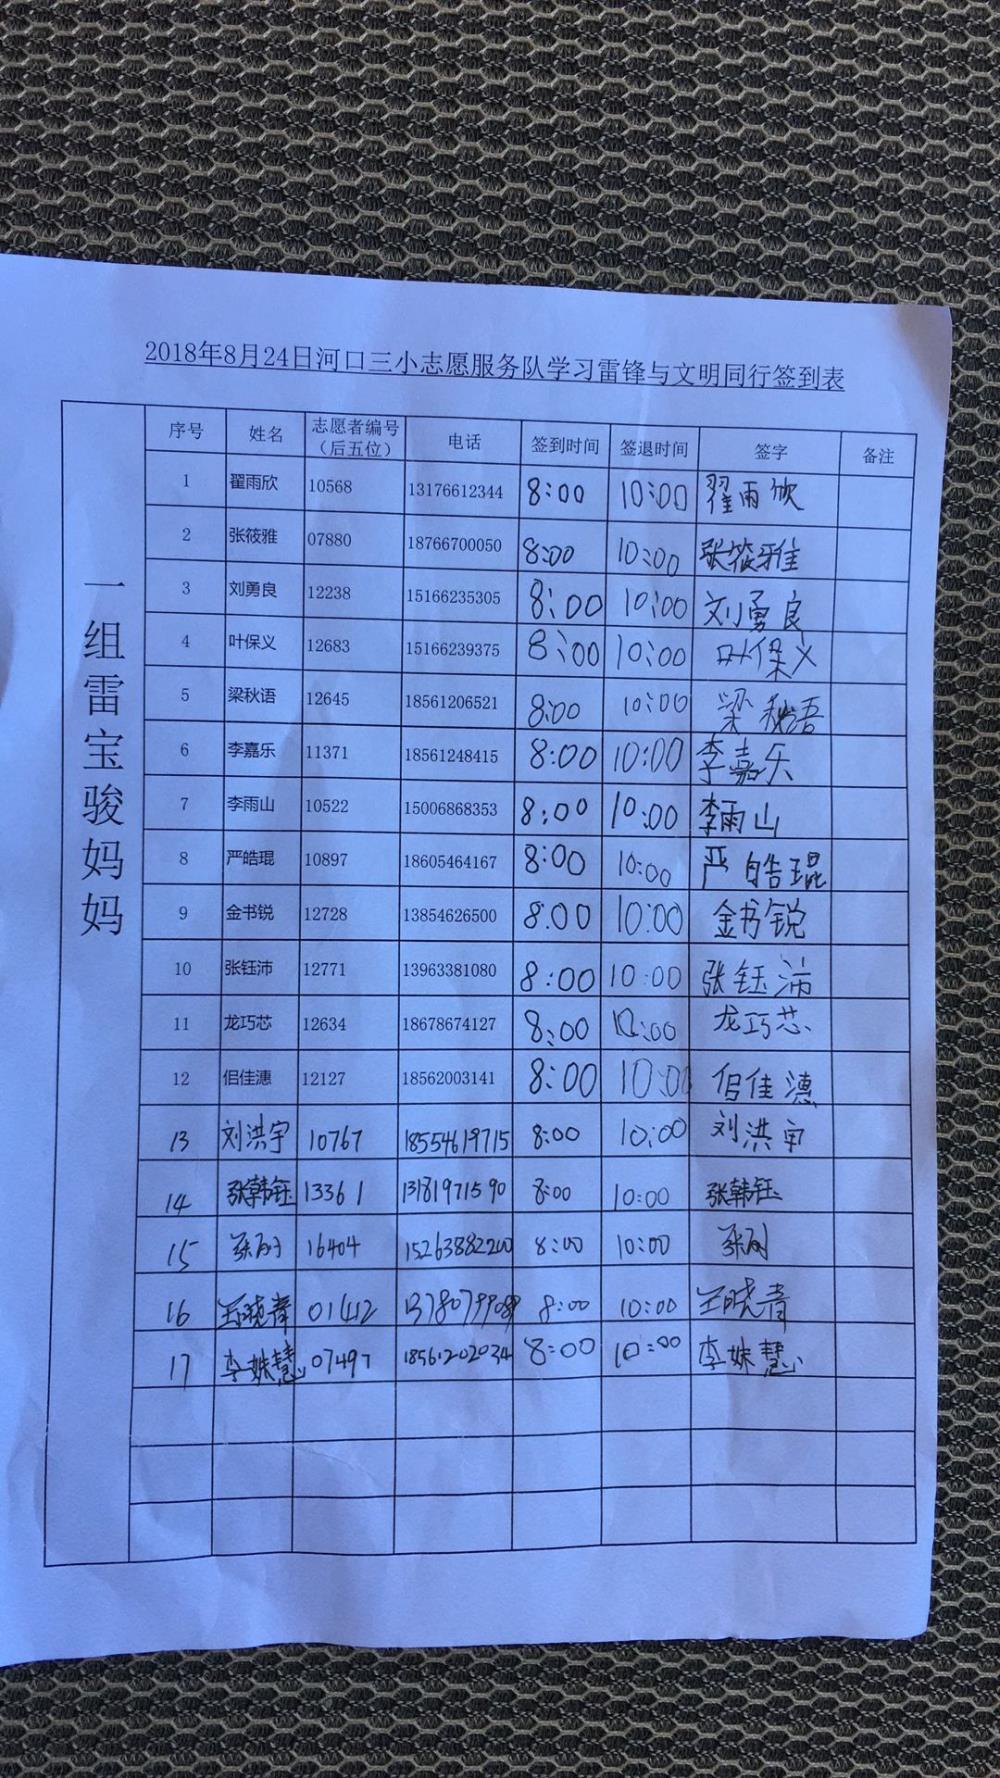 2018年8月24日河口三小志愿服务队学习雷锋与文明同行签到表
一组雷宝骏妈妈
序号 姓名 志愿者编号（后五位） 电话 签到时间 签退时间 签字 备注
1 翟雨欣 10568 13176612344 8:00 10:00 翟雨欣
2 张筱雅 07880 18766700050 8:00 10:00 张筱雅
3 刘勇良 12238 15166235305 8:00 10:00 刘勇良
4 叶保义 12683 15166239375 8:00 10:00 叶保义
5 梁秋语 12645 18561206521 8:00 10:00 梁秋语
6 李嘉乐 11371 18561248415 8:00 10:00 李嘉乐
7 李雨山 10522 15006868353 8:00 10:00 李雨山
8 严皓琨 10897 18605464167 8:00 10:00 严皓琨
9 金书锐 12728 13854626500 8:00 10:00 金书锐
10 张钰沛 12771 13963381080 8:00 10:00 张钰沛
11 龙巧芯 12634 18678674127 8:00 10:00 龙巧芯
12 佀佳潓 12127 18562003141 8:00 10:00 佀佳潓
13 刘洪宇 10767 18554619715 8:00 10:00 刘洪宇
14 张韩钰 13361 13181971590 8:00 10:00 张韩钰
15 16404 15263882200 8:00 10:00
16 王晓青 01412 8:00 10:00 王晓青
17 李姝慧 07497 18561202034 8:00 10:00 李姝慧